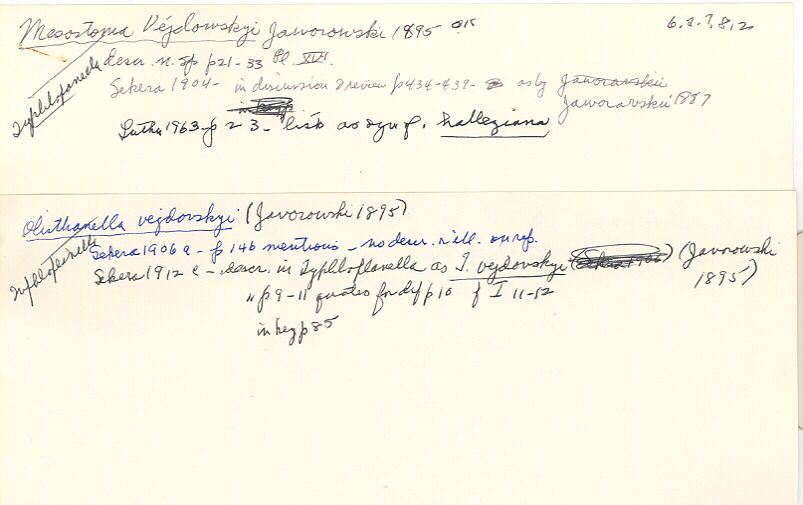 Mesostoma Vejdowskyi Jaworowski 1895 ok
6.2.7.8.2
Typhloplanella
descr. n. sp p21-33 Pl. XVI.
Sekera 1904 - in discussion & review p434-439 - as by Jaworowskii
Jaworovskii 1887
Luther 1963 - p 2 3 - lists as syn of. halleziana
Olisthanella vejdovskyi (Javorowski 1895)
Typhloplanella
Sekera 1906a - p 146 mentions - no descr. n. ill. on rep.
Sekera 1912 c - descr. in Typhloplanella as T. vejdovskyi (Sekera 1906) (Javorowski
1895)
" p9-11 quotes for dif p10 f I 11-12
in key p85